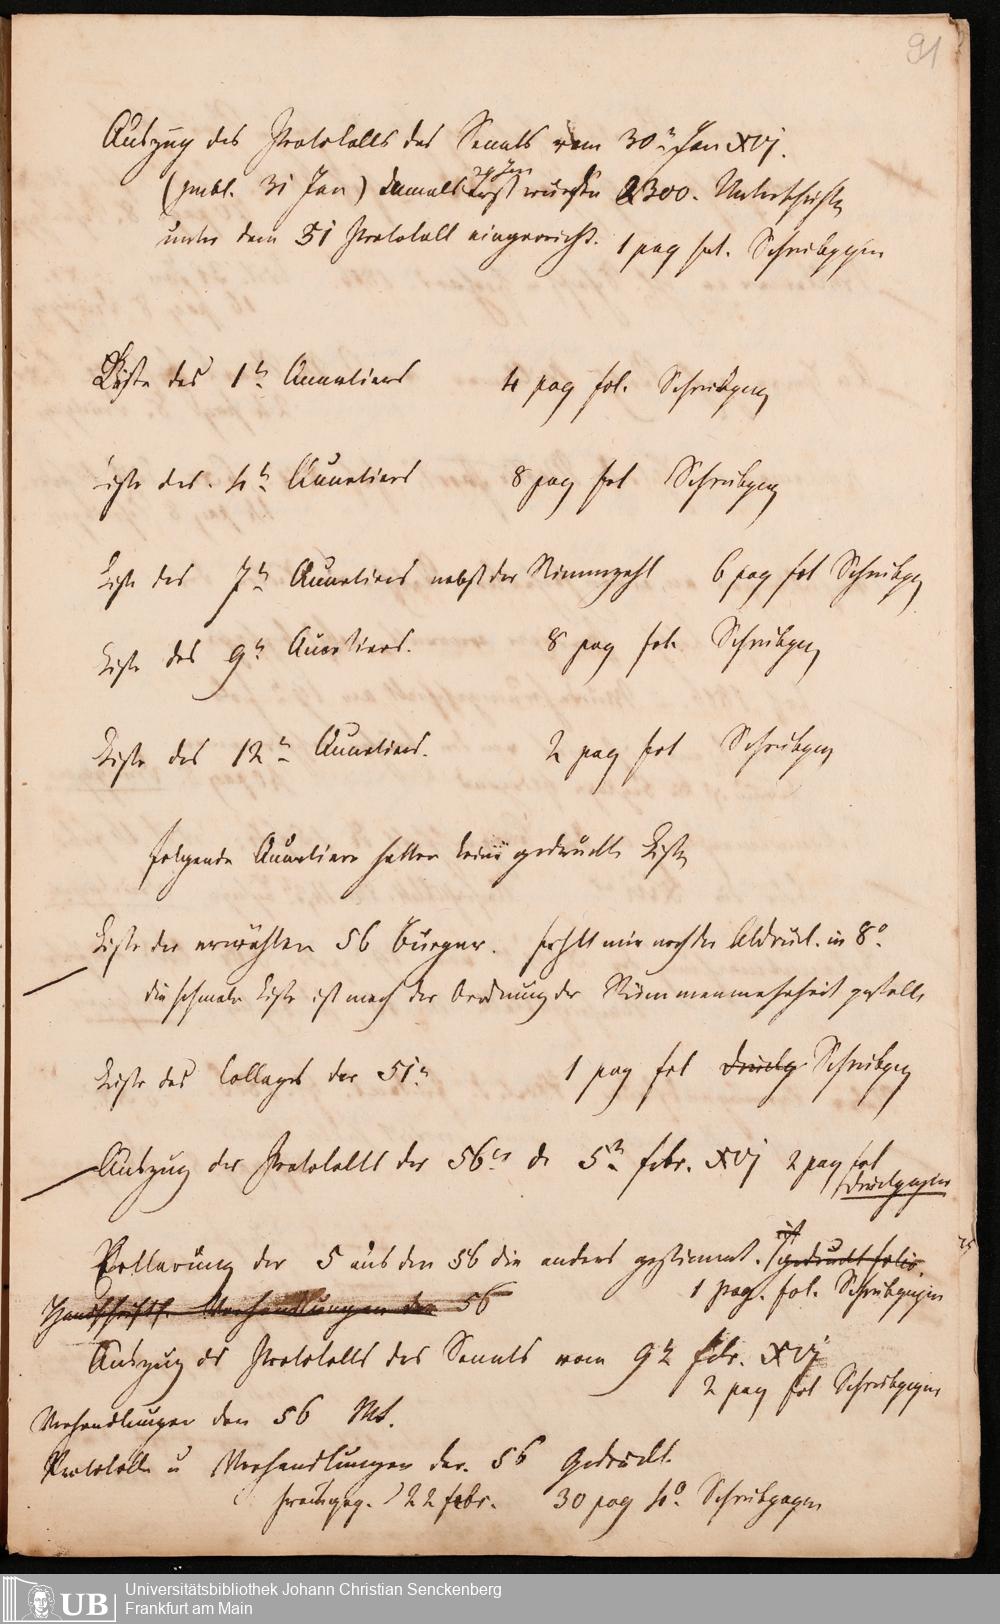 91
Auszug des Protokolls des Senats vom 30n Jan XVj.
(publ. 31 Jan) damals erst wurden 2300. Unterschriften
29 Jan
unter dem 51 Protokoll eingereicht. 1 pag fol. Schreibpapier
Liste des 1n Quartiers 4 pag fol. Schreibpap
Liste des 4n Quartiers 8 pag fol Schreibpap
Liste des 7n Quartiers nebst der Stimmzahl 6 pag fol Schreibpap
Liste des 9n Quartiers. 8 pag fol. Schreibpap
Liste des 12n Quartiers. 2 pag fol Schreibpap
folgende Quartiere hatten keine gedruckte Liste
Liste der erwählten 56 Bürger. fehlt mir noch der Abdruck in 8o.
die schmale Liste ist nach der Ordnung der Stimmenmehrheit gestellt
Liste des Colleges der 51n 1 pag fol Druckp Schreibpap
Auszug der Protokolle der 56er de 5n febr. XVj 2 pag fol
Druckpapier
Erklärung der 5 aus den 56 die anders gestimmt. ist gedruckt folio
1 pag. fol. Schreibpapier
Handschriftl. Verhandlungen der 56
Auszug des Protokolls des Senats vom 9n febr. XVj
2 pag fol Schreibpapier
Verhandlungen den 56 Ms.
Protokolle u Verhandlungen der 56 Gedruckt.
22 febr. 30 pag 4o. Schreibpapier